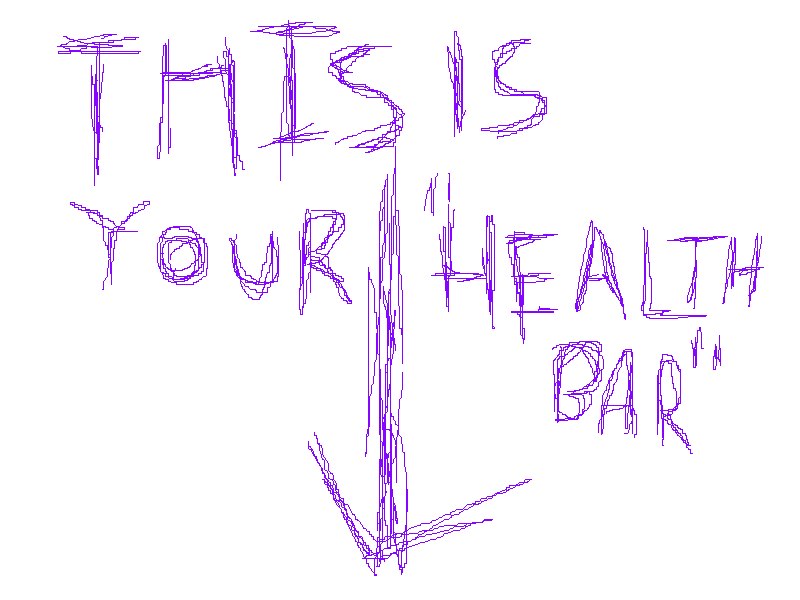 THIS IS
YOUR "HEALTH
BAR"